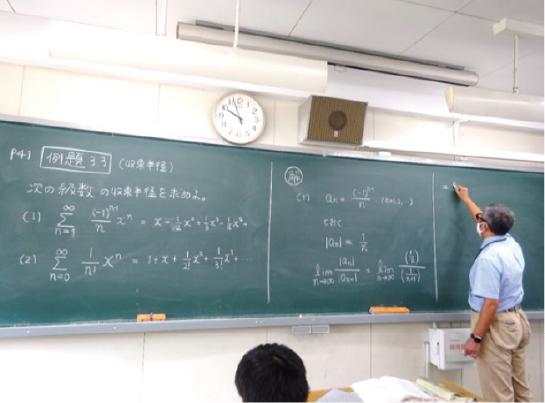 P41 例題 3.3 (収束半径)
次の級数の収束半径を求めよ。
(1) ∑_{n=1}^{∞} (-1)^{n-1}/n x^n = x - 1/2 x² + 1/3 x³ - 1/4 x⁴
(2) ∑_{n=0}^{∞} 1/n! x^n = 1 + x + 1/2! x² + 1/3! x³ + ...
解
(1) a_n = (-1)^{n-1}/n
とおく
|a_n| = 1/n
lim_{n→∞} |a_n|/|a_{n+1}| = lim_{n→∞} (1/n)/(1/(n+1))
=